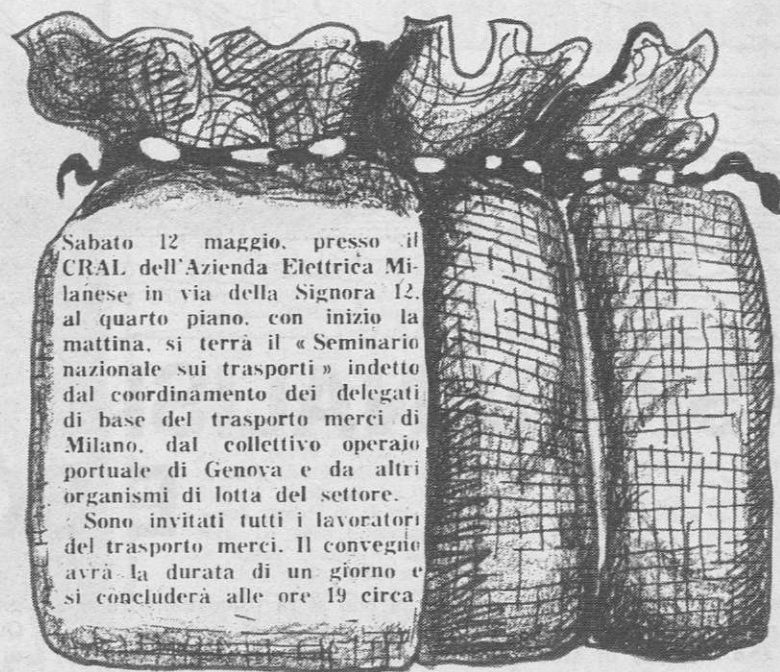 Sabato 12 maggio, presso il
CRAL dell'Azienda Elettrica Mi-
lanese in via della Signora 12,
al quarto piano, con inizio la
mattina, si terrà il « Seminario
nazionale sui trasporti » indetto
dal coordinamento dei delegati
di base del trasporto merci di
Milano, dal collettivo operaio
portuale di Genova e da altri
organismi di lotta del settore.
Sono invitati tutti i lavoratori
del trasporto merci. Il convegno
avrà la durata di un giorno e
si concluderà alle ore 19 circa.